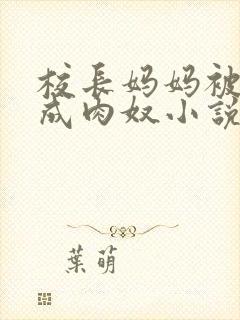 校長妈妈被
成肉奴小説
葉萌